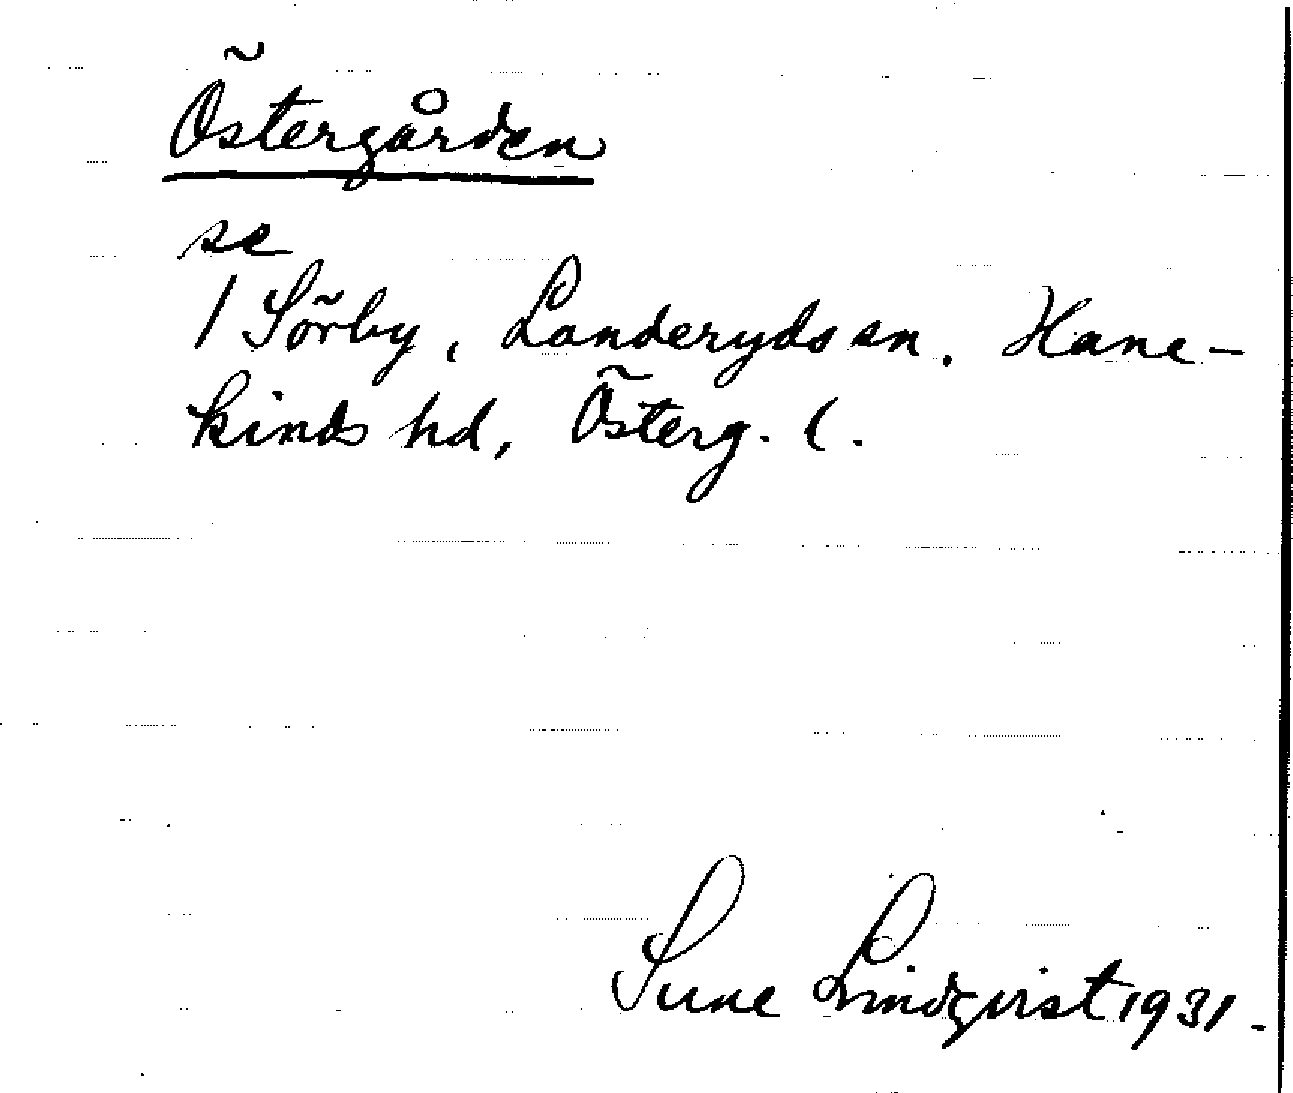 Östergården
se
/ Sörby, Landeryds sn. Hane-
kinds hd, Österg. l.
Sune Lindqvist 1931.